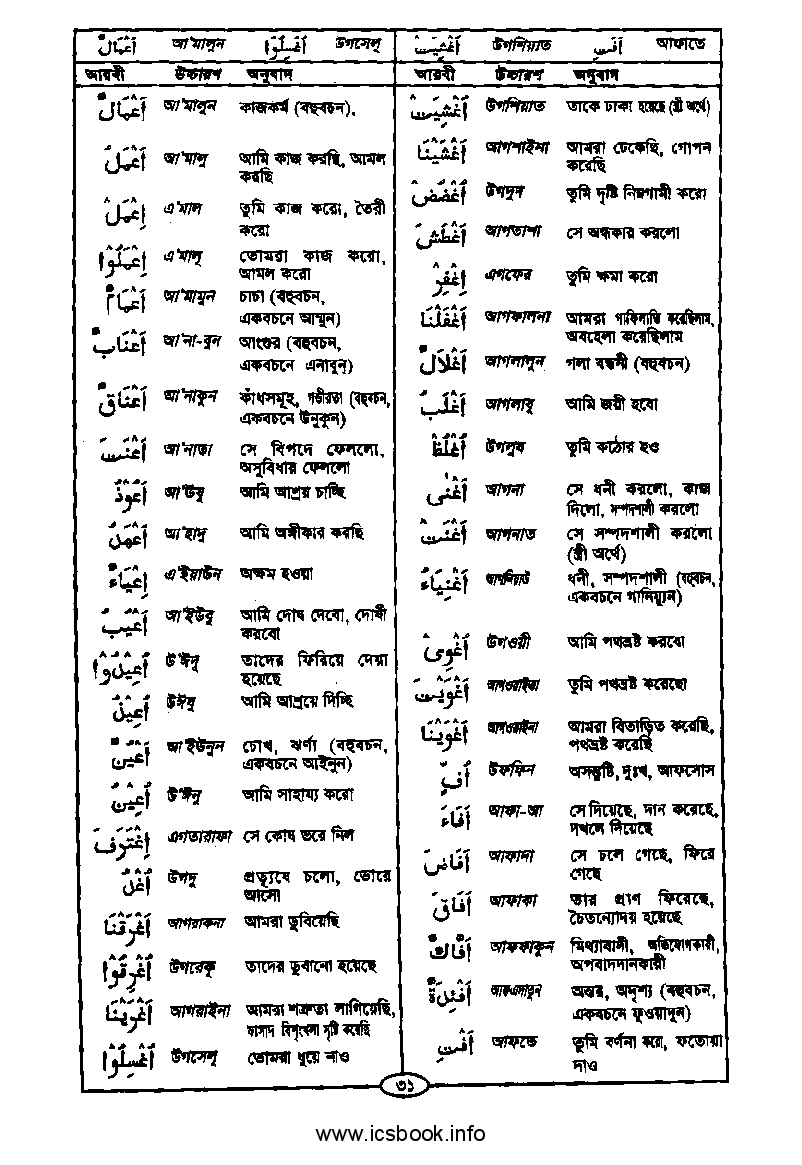 أَعْمَالٌ আ'মালুন اِغْسِلُوْا উগসেলু
أُغْشِيَتْ উগশিয়াত أَفْتِ আফাতে
আরবী উচ্চারণ অনুবাদ
أَعْمَالٌ আ'মালুন কাজকর্ম (বহুবচন),
أَعْمَلُ আ'মালু আমি কাজ করছি, আমল
করছি
اِعْمَلْ এ'মাল তুমি কাজ করো, তৈরী
করো
اِعْمَلُوْا এ'মালু তোমরা কাজ করো,
আমল করো
أَعْمَامٌ আ'মামুন চাচা (বহুবচন,
একবচনে আম্মুন)
أَعْنَابٌ আ'না-বুন আংগুর (বহুবচন,
একবচনে এনাবুন)
أَعْنَاقٌ আ'নাকুন কাঁধসমূহ, গভীরতা (বহুবচন,
একবচনে উনুকুন)
أَعْنَتَ আ'নাতা সে বিপদে ফেললো,
অসুবিধায় ফেললো
أَعُوْذُ আ'উযু আমি আশ্রয় চাচ্ছি
أَعْهَدُ আ'হাদু আমি অঙ্গীকার করছি
اِعْيَاءٌ এ'ইয়াউন অক্ষম হওয়া
أَعِيْبُ আ'ইউবু আমি দোষ দেবো, দোষী
করবো
أُعِيْدُوْا উ'ঈদু তাদের ফিরিয়ে দেয়া
হয়েছে
أُعِيْذُ উঈযু আমি আশ্রয়ে দিচ্ছি
أَعْيُنٌ আ'ইউনুন চোখ, ঝর্ণা (বহুবচন,
একবচনে আইনুন)
أُعِيْنُ উ'ঈনু আমি সাহায্য করো
اِغْتَرَفَ এগতারাফা সে কোষ ভরে নিল
أُغْدُ উগদু প্রত্যুষে চলো, ভোরে
আসো
أَغْرَقْنَا আগরাকনা আমরা ডুবিয়েছি
أُغْرِقُوْا উগরেকু তাদের ডুবানো হয়েছে
أَغْرَيْنَا আগরাইনা আমরা শত্রুতা লাগিয়েছি,
ফাসাদ বিশৃংখলা সৃষ্টি করেছি
اِغْسِلُوْا উগসেলু তোমরা ধুয়ে নাও
আরবী উচ্চারণ অনুবাদ
أُغْشِيَتْ উগশিয়াত তাকে ঢাকা হয়েছে (স্ত্রী অর্থে)
أَغْشَيْنَا আগশাইনা আমরা ঢেকেছি, গোপন
করেছি
أُغْضُضْ উগদুদ তুমি দৃষ্টি নিম্নগামী করো
أَغْطَشَ আগতাশা সে অন্ধকার করলো
اِغْفِرْ এগফের তুমি ক্ষমা করো
أَغْفَلْنَا আগফালনা আমরা গাফিলতি করেছিলাম,
অবহেলা করেছিলাম
أَغْلَالٌ আগলালুন গলা বন্ধনী (বহুবচন)
أَغْلَبُ আগলাবু আমি জয়ী হবো
أُغْلُظْ উগলুয তুমি কঠোর হও
أَغْنٰى আগনা সে ধনী করলো, কাজ
দিলো, সম্পদশালী করলো
أَغْنَتْ আগনাত সে সম্পদশালী করলো
(স্ত্রী অর্থে)
أَغْنِيَاءُ আগনিয়াউ ধনী, সম্পদশালী (বহুবচন,
একবচনে গানিয়্যুন)
أُغْوِىْ উগওয়ী আমি পথভ্রষ্ট করবো
أَغْوَيْتَ আগওয়াইতা তুমি পথভ্রষ্ট করেছো
أَغْوَيْنَا আগওয়াইনা আমরা বিতাড়িত করেছি,
পথভ্রষ্ট করেছি
أُفٍّ উফফিন অসন্তুষ্টি, দুঃখ, আফসোস
أَفَاءَ আফা-আ সে দিয়েছে, দান করেছে,
দখলে দিয়েছে
أَفَاضَ আফাদা সে চলে গেছে, ফিরে
গেছে
أَفَاقَ আফাকা তার প্রাণ ফিরেছে,
চৈতন্যোদয় হয়েছে
أَفَّاكٌ আফফাকুন মিথ্যাবাদী, অভিযোগকারী,
অপবাদদানকারী
أَفْئِدَةٌ আফএদাতুন অন্তর, অদৃশ্য (বহুবচন,
একবচনে ফূওয়াদুন)
أَفْتِ আফতে তুমি বর্ণনা করো, ফতোয়া
দাও
৩১
www.icsbook.info